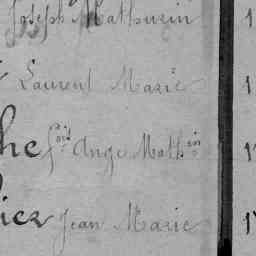 Joseph Mathurin 1
Laurent Marie 1
he fois Ange Math in 1
ier Jean Marie 1